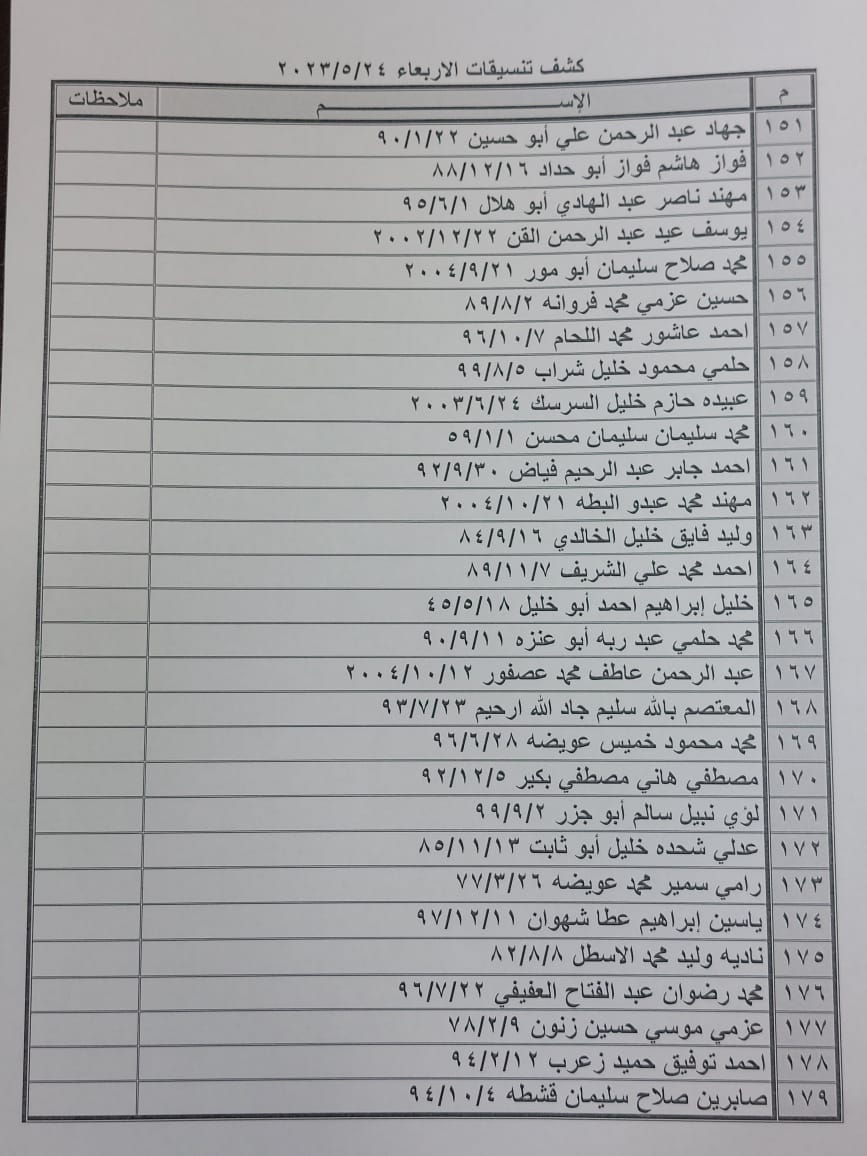 كشف تنسيقات الاربعاء ٢٠٢٣/٥/٢٤
م الإســـــــــــــــم ملاحظات
١٥١ جهاد عبد الرحمن علي أبو حسين ٩٠/١/٢٢
١٥٢ فواز هاشم فواز أبو حداد ٨٨/١٢/١٦
١٥٣ مهند ناصر عبد الهادي أبو هلال ٩٥/٦/١
١٥٤ يوسف عيد عبد الرحمن القن ٢٠٠٢/١٢/٢٢
١٥٥ محمد صلاح سليمان أبو مور ٢٠٠٤/٩/٢١
١٥٦ حسين عزمي محمد فروانه ٨٩/٨/٢
١٥٧ احمد عاشور محمد اللحام ٩٦/١٠/٧
١٥٨ حلمي محمود خليل شراب ٩٩/٨/٥
١٥٩ عبيده حازم خليل السرسك ٢٠٠٣/٦/٢٤
١٦٠ محمد سليمان سليمان محسن ٥٩/١/١
١٦١ احمد جابر عبد الرحيم فياض ٩٢/٩/٣٠
١٦٢ مهند محمد عبدو البطه ٢٠٠٤/١٠/٢١
١٦٣ وليد فايق خليل الخالدي ٨٤/٩/١٦
١٦٤ احمد محمد علي الشريف ٨٩/١١/٧
١٦٥ خليل إبراهيم احمد أبو خليل ٤٥/٥/١٨
١٦٦ محمد حلمي عبد ربه أبو عنزه ٩٠/٩/١١
١٦٧ عبد الرحمن عاطف محمد عصفور ٢٠٠٤/١٠/١٢
١٦٨ المعتصم بالله سليم جاد الله ارحيم ٩٣/٧/٢٣
١٦٩ محمد محمود خميس عويضه ٩٦/٦/٢٨
١٧٠ مصطفي هاني مصطفي بكير ٩٢/١٢/٥
١٧١ لؤي نبيل سالم أبو جزر ٩٩/٩/٢
١٧٢ عدلي شحده خليل أبو ثابت ٨٥/١١/١٣
١٧٣ رامي سمير محمد عويضه ٧٧/٣/٢٦
١٧٤ ياسين إبراهيم عطا شهوان ٩٧/١٢/١١
١٧٥ ناديه وليد محمد الاسطل ٨٢/٨/٨
١٧٦ محمد رضوان عبد الفتاح العفيفي ٩٦/٧/٢٢
١٧٧ عزمي موسي حسين زنون ٧٨/٢/٩
١٧٨ احمد توفيق حميد زعرب ٩٤/٢/١٢
١٧٩ صابرين صلاح سليمان قشطه ٩٤/١٠/٤